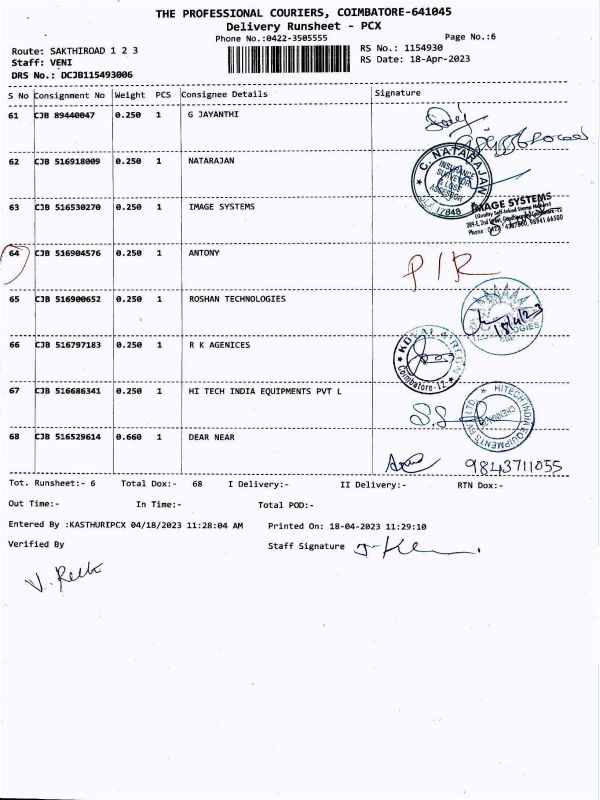 THE PROFESSIONAL COURIERS, COIMBATORE-641045
Delivery Runsheet - PCX
Phone No.:0422-3505555
Page No.:6
Route: SAKTHIROAD 1 2 3
RS No.: 1154930
Staff: VENI
RS Date: 18-Apr-2023
DRS No.: DCJB115493006
S No Consignment No Weight PCS Consignee Details Signature
61 CJB 89440047 0.250 1 G JAYANTHI
62 CJB 516918009 0.250 1 NATARAJAN
C. NATARAJAN
INSURANCE
SURVEYOR
& LOSS
ASSESSOR
17848
63 CJB 516530270 0.250 1 IMAGE SYSTEMS
IMAGE SYSTEMS
64 CJB 516904576 0.250 1 ANTONY
P/R
65 CJB 516900652 0.250 1 ROSHAN TECHNOLOGIES
18/4/23
66 CJB 516797183 0.250 1 R K AGENICES
Coimbatore-12
67 CJB 516686341 0.250 1 HI TECH INDIA EQUIPMENTS PVT L
HITECH INDIA EQUIPMENTS PVT LTD
S.S
68 CJB 516529614 0.660 1 DEAR NEAR
9843711055
Tot. Runsheet:- 6 Total Dox:- 68 I Delivery:- II Delivery:- RTN Dox:-
Out Time:- In Time:- Total POD:-
Entered By :KASTHURIPCX 04/18/2023 11:28:04 AM Printed On: 18-04-2023 11:29:10
Verified By Staff Signature